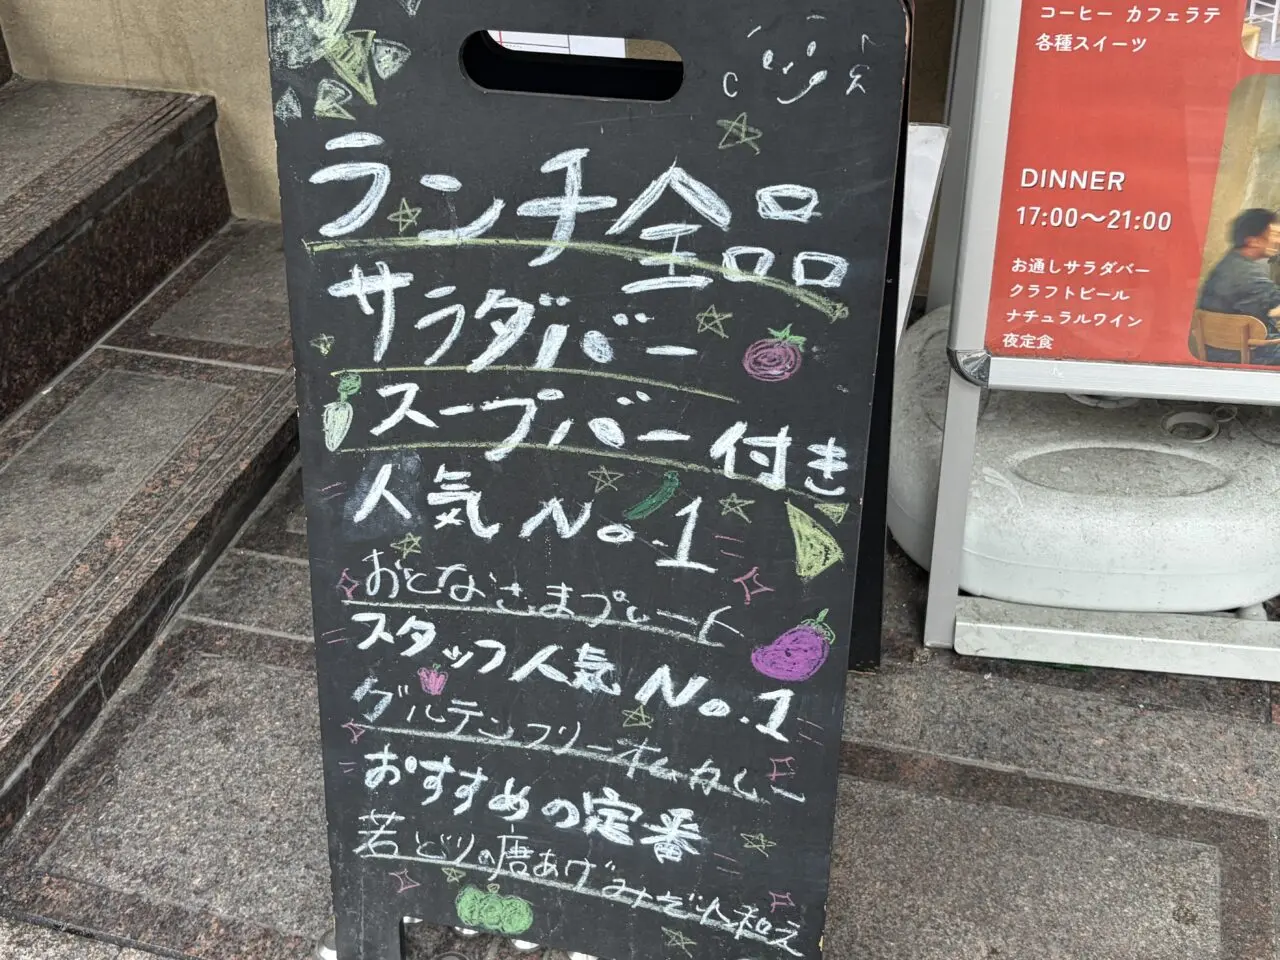 ランチ全品
サラダバー
スープバー付き
人気No.1
おとなさまプレート
スタッフ人気No.1
グルテンフリー米
おすすめの定番
若どりの唐あげみぞれ和え
コーヒー カフェラテ
各種スイーツ
DINNER
17:00〜21:00
お通しサラダバー
クラフトビール
ナチュラルワイン
夜定食